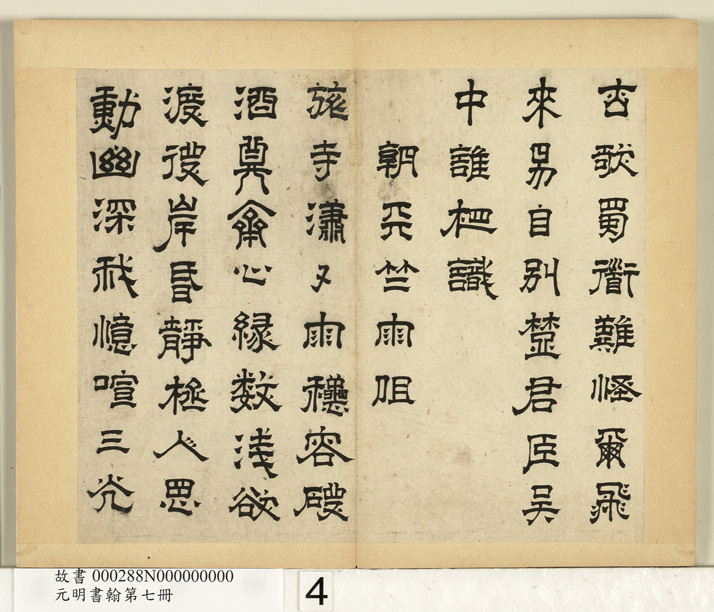 歌蜀衟難怪爾飛
來易自別楚君臣吳
中誰杷識
朝天竺雨阻
旅寺瀟〻雨容
酒奠齋心緣數淺欲
渡彼岸昏靜極人思
動幽深我憶喧三
故書 000288N000000000
元明書翰第七冊
4